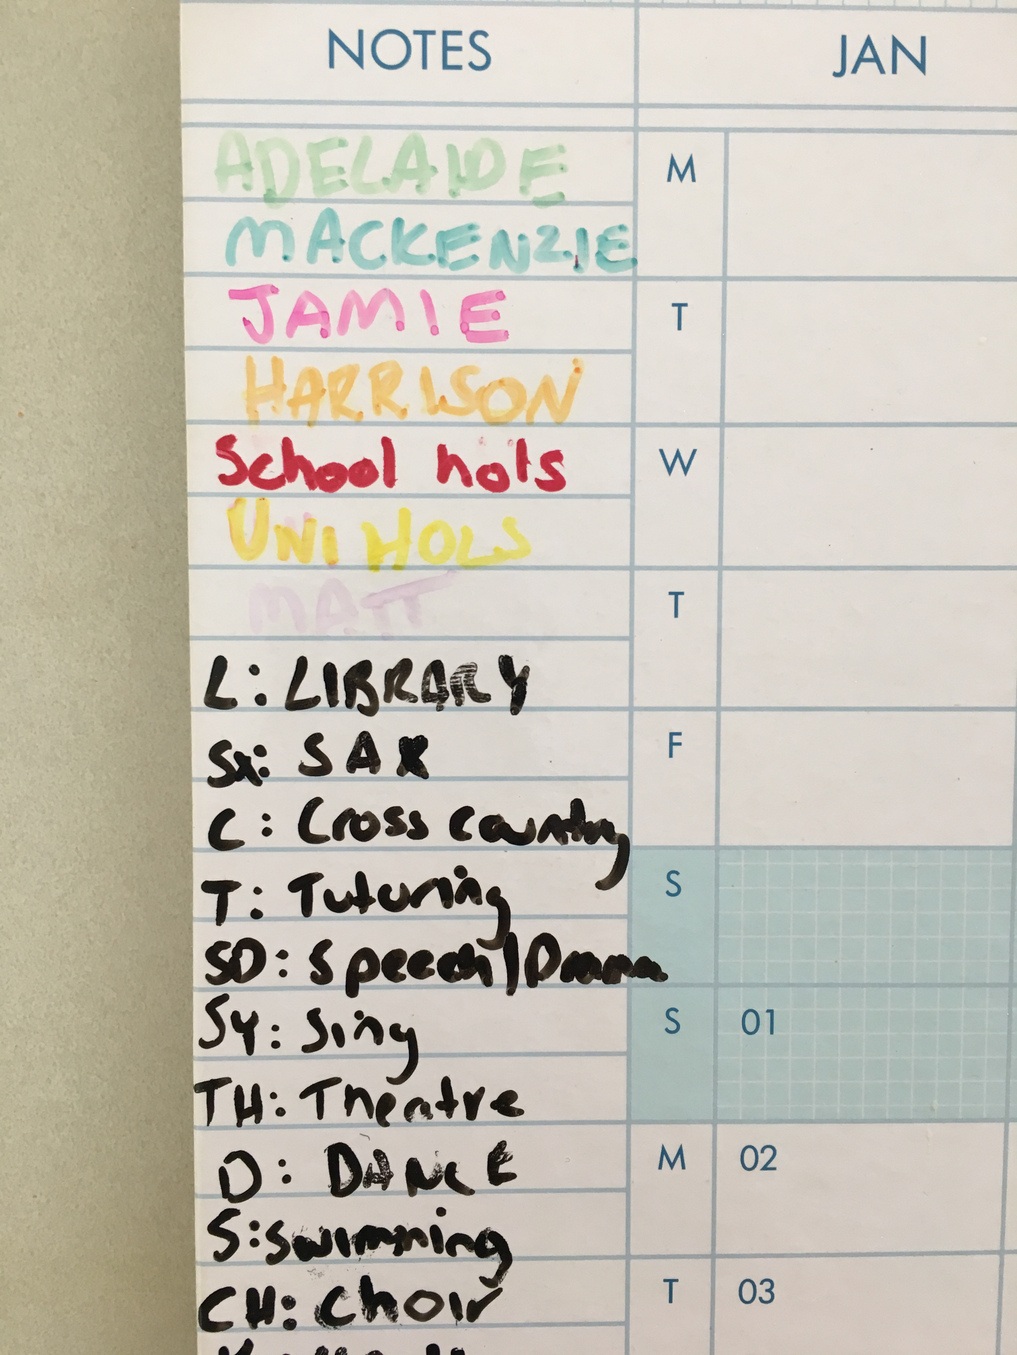 NOTES
JAN
ADELAIDE
MACKENZIE
JAMIE
HARRISON
School hols
UNI HOLS
MATT
L: LIBRARY
Sx: SAX
C: Cross country
T: Tutoring
SD: Speech/Drama
SY: Sing
TH: Theatre
D: DANCE
S: Swimming
CH: Choir
M
T
W
T
F
S
S 01
M 02
T 03